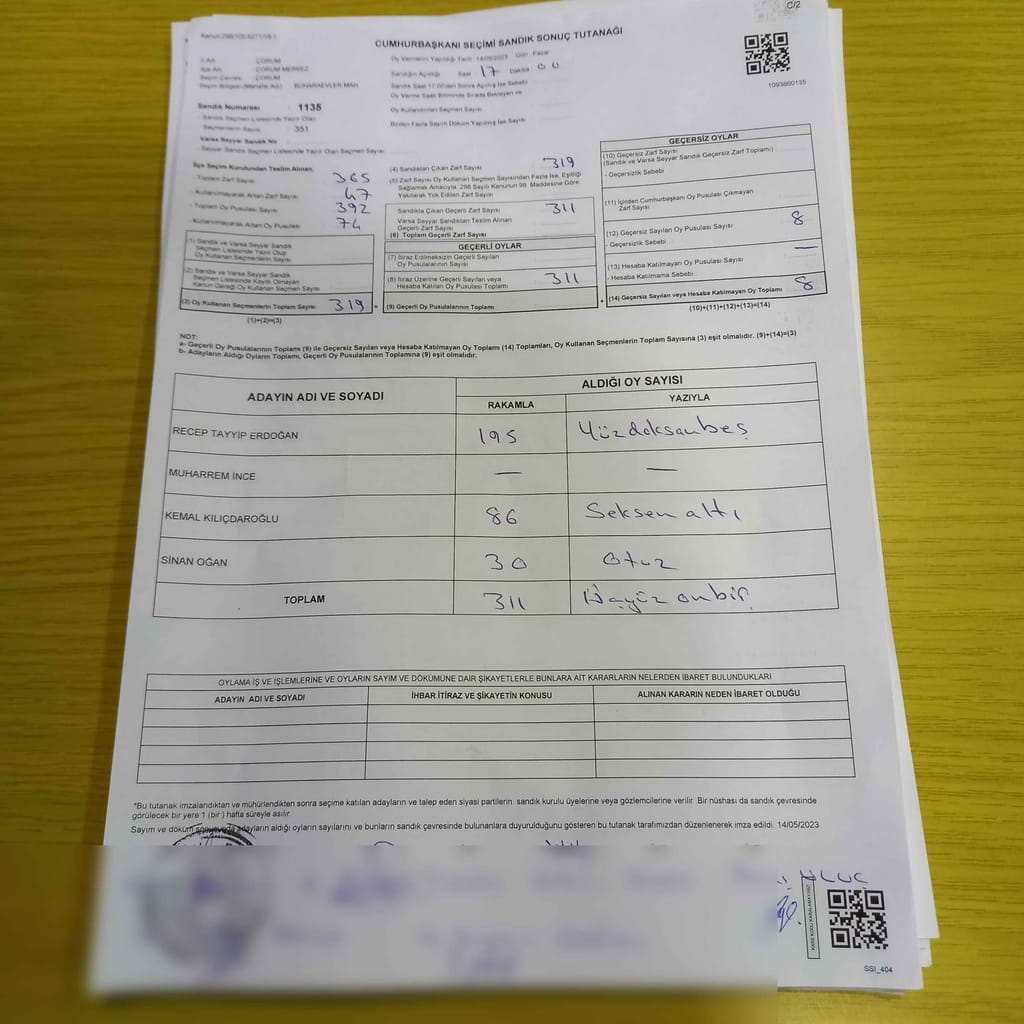 C/2
Kanun:298/105,6271/18-1
CUMHURBAŞKANI SEÇİMİ SANDIK SONUÇ TUTANAĞI
1093860135
İl Adı : ÇORUM
İlçe Adı : ÇORUM MERKEZ
Seçim Çevresi : ÇORUM
Seçim Bölgesi (Mahalle Adı) : BUHARAEVLER MAH
Sandık Numarası : 1135
Sandık Seçmen Listesinde Yazılı Olan
Seçmenlerin Sayısı : 351
Varsa Seyyar Sandık No
Seyyar Sandık Seçmen Listesinde Yazılı Olan Seçmen Sayısı
Oy Vermenin Yapıldığı Tarih : 14/05/2023 Gün : Pazar
Sandığın Açıldığı Saat 17 Dakika 00
Sandık Saat 17.00'den Sonra Açılmış İse Sebebi
Oy Verme Saati Bitiminde Sırada Bekleyen ve
Oy Kullandırılan Seçmen Sayısı
Birden Fazla Sayım Döküm Yapılmış İse Sayısı
İlçe Seçim Kurulundan Teslim Alınan,
- Toplam Zarf Sayısı 365
- Kullanılmayarak Artan Zarf Sayısı 47
- Toplam Oy Pusulası Sayısı 392
- Kullanılmayarak Artan Oy Pusulası 74
(1) Sandık ve Varsa Seyyar Sandık
Seçmen Listesinde Yazılı Olup
Oy Kullanan Seçmenlerin Sayısı
(2) Sandık ve Varsa Seyyar Sandık
Seçmen Listesinde Kayıtlı Olmayan
Kanun Gereği Oy Kullanan Seçmen Sayısı
(3) Oy Kullanan Seçmenlerin Toplam Sayısı 319 =
(1)+(2)=(3)
(4) Sandıktan Çıkan Zarf Sayısı 319
(5) Zarf Sayısı Oy Kullanan Seçmen Sayısından Fazla İse, Eşitliği
Sağlamak Amacıyla, 298 Sayılı Kanunun 98. Maddesine Göre
Yakılarak Yok Edilen Zarf Sayısı
Sandıkta Çıkan Geçerli Zarf Sayısı 311
Varsa Seyyar Sandıktan Teslim Alınan
Geçerli Zarf Sayısı
(6) Toplam Geçerli Zarf Sayısı
GEÇERLİ OYLAR
(7) İtiraz Edilmeksizin Geçerli Sayılan
Oy Pusulalarının Sayısı
(8) İtiraz Üzerine Geçerli Sayılan veya
Hesaba Katılan Oy Pusulası Toplamı 311
(9) Geçerli Oy Pusulalarının Toplamı +
GEÇERSİZ OYLAR
(10) Geçersiz Zarf Sayısı
(Sandık ve Varsa Seyyar Sandık Geçersiz Zarf Toplamı)
- Geçersizlik Sebebi
(11) İçinden Cumhurbaşkanı Oy Pusulası Çıkmayan
Zarf Sayısı
(12) Geçersiz Sayılan Oy Pusulası Sayısı 8
- Geçersizlik Sebebi —
(13) Hesaba Katılmayan Oy Pusulası Sayısı
- Hesaba Katılmama Sebebi
(14) Geçersiz Sayılan veya Hesaba Katılmayan Oy Toplamı 8
(10)+(11)+(12)+(13)=(14)
NOT:
a- Geçerli Oy Pusulalarının Toplamı (9) ile Geçersiz Sayılan veya Hesaba Katılmayan Oy Toplamı (14) Toplamları, Oy Kullanan Seçmenlerin Toplam Sayısına (3) eşit olmalıdır. (9)+(14)=(3)
b- Adayların Aldığı Oyların Toplamı, Geçerli Oy Pusulalarının Toplamına (9) eşit olmalıdır.
ADAYIN ADI VE SOYADI ALDIĞI OY SAYISI
RAKAMLA YAZIYLA
RECEP TAYYİP ERDOĞAN 195 Yüzdoksanbeş
MUHARREM İNCE — —
KEMAL KILIÇDAROĞLU 86 Seksen altı
SİNAN OĞAN 30 Otuz
TOPLAM 311 Üçyüz onbir
OYLAMA İŞ VE İŞLEMLERİNE VE OYLARIN SAYIM VE DÖKÜMÜNE DAİR ŞİKAYETLERLE BUNLARA AİT KARARLARIN NELERDEN İBARET BULUNDUKLARI
ADAYIN ADI VE SOYADI İHBAR İTİRAZ VE ŞİKAYETİN KONUSU ALINAN KARARIN NEDEN İBARET OLDUĞU
*Bu tutanak imzalandıktan ve mühürlendikten sonra seçime katılan adayların ve talep eden siyasi partilerin sandık kurulu üyelerine veya gözlemcilerine verilir. Bir nüshası da sandık çevresinde
görülecek bir yere 1 (bir) hafta süreyle asılır.
Sayım ve döküm sonucunda adayların aldığı oyların sayılarını ve bunların sandık çevresinde bulunanlara duyurulduğunu gösteren bu tutanak tarafımızdan düzenlenerek imza edildi. 14/05/2023
KARE KODU KARALAMAYINIZ!
SSI_404